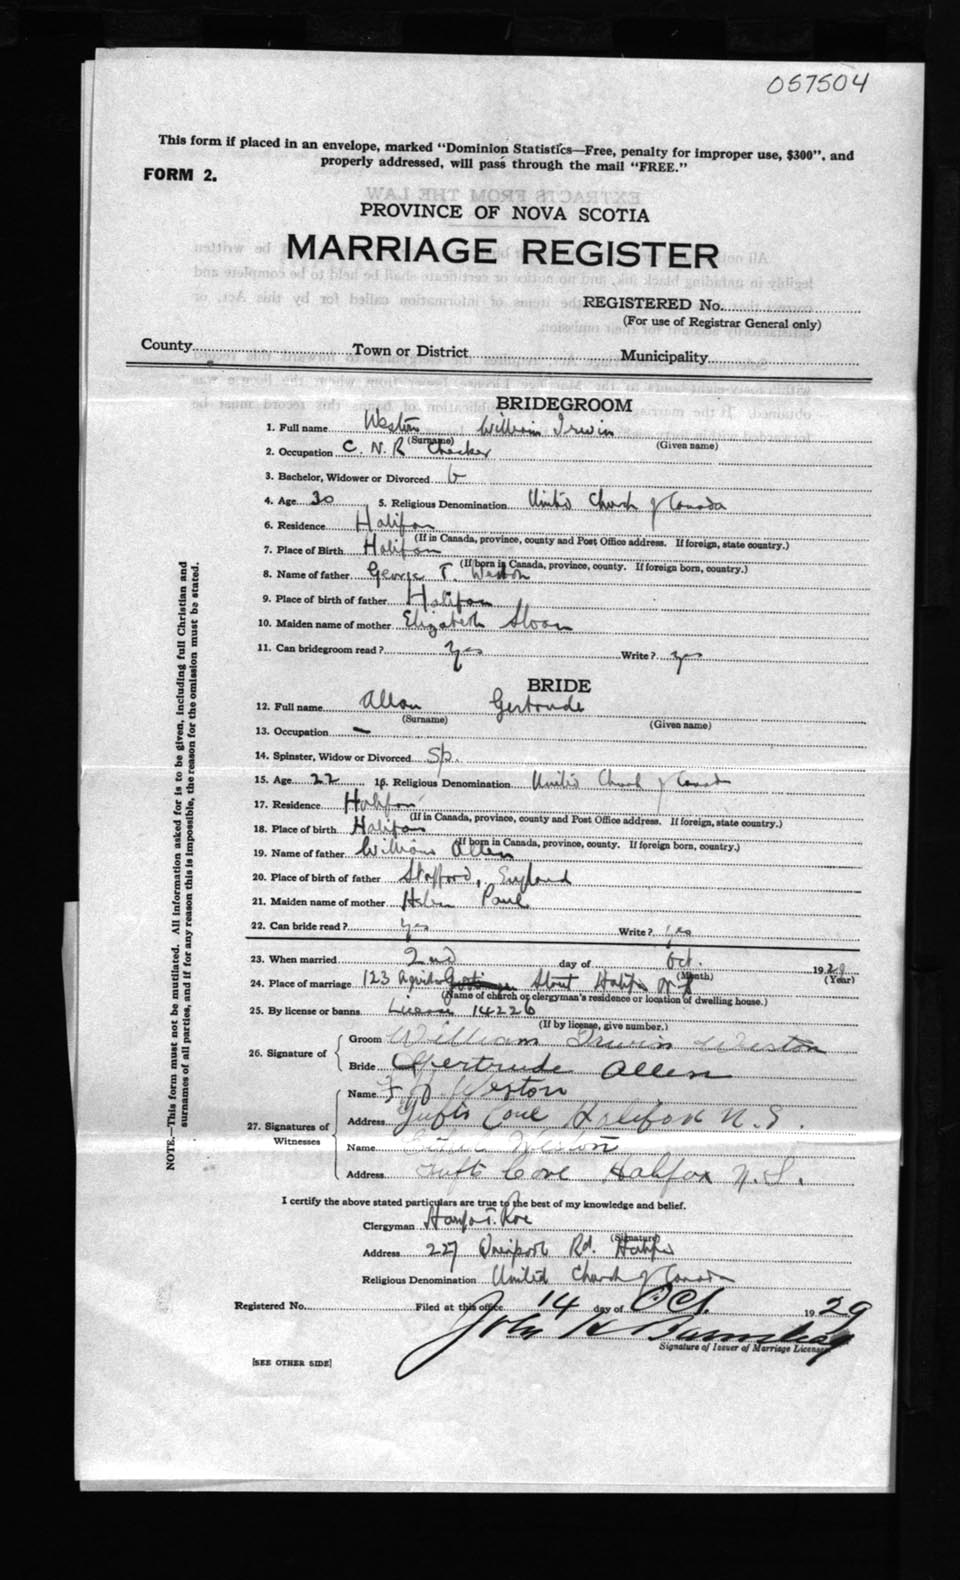 057504
This form if placed in an envelope, marked "Dominion Statistics—Free, penalty for improper use, $300", and
properly addressed, will pass through the mail "FREE."
FORM 2.
PROVINCE OF NOVA SCOTIA
MARRIAGE REGISTER
REGISTERED No.
(For use of Registrar General only)
County Town or District Municipality
BRIDEGROOM
1. Full name Weston William Irwin
(Surname) (Given name)
2. Occupation C. N. R Checker
3. Bachelor, Widower or Divorced b
4. Age 30 5. Religious Denomination United Church of Canada
6. Residence Halifax
(If in Canada, province, county and Post Office address. If foreign, state country.)
7. Place of Birth Halifax
(If born in Canada, province, county. If foreign born, country.)
8. Name of father George T. Weston
9. Place of birth of father Halifax
10. Maiden name of mother Elizabeth Sloan
11. Can bridegroom read? yes Write? yes
BRIDE
12. Full name Allen Gertrude
(Surname) (Given name)
13. Occupation —
14. Spinster, Widow or Divorced Sp.
15. Age 22 16. Religious Denomination United Church of Canada
17. Residence Halifax
(If in Canada, province, county and Post Office address. If foreign, state country.)
18. Place of birth Halifax
(If born in Canada, province, county. If foreign born, country.)
19. Name of father William Allen
20. Place of birth of father Stafford, England
21. Maiden name of mother Helen Paul
22. Can bride read? yes Write? yes
23. When married 2nd day of Oct. 1929
(Month) (Year)
24. Place of marriage 123 Agricola Street Halifax N S
(Name of church or clergyman's residence or location of dwelling house.)
25. By license or banns License 14226
(If by license, give number.)
26. Signature of
Groom William Irwin Weston
Bride Gertrude Allen
27. Signatures of
Witnesses
Name F J Weston
Address Tufts Cove Halifax N.S.
Name Weston
Address Tufts Cove Halifax N.S.
I certify the above stated particulars are true to the best of my knowledge and belief.
Clergyman Roe
(Signature)
Address 227 Rd. Halifax
Religious Denomination United Church of Canada
Registered No. Filed at this office 14 day of Oct. 1929
John H
Signature of Issuer of Marriage Licenses
[SEE OTHER SIDE]
NOTE.—This form must not be mutilated. All information asked for is to be given, including full Christian and
surnames of all parties, and if for any reason this is impossible, the reason for the omission must be stated.